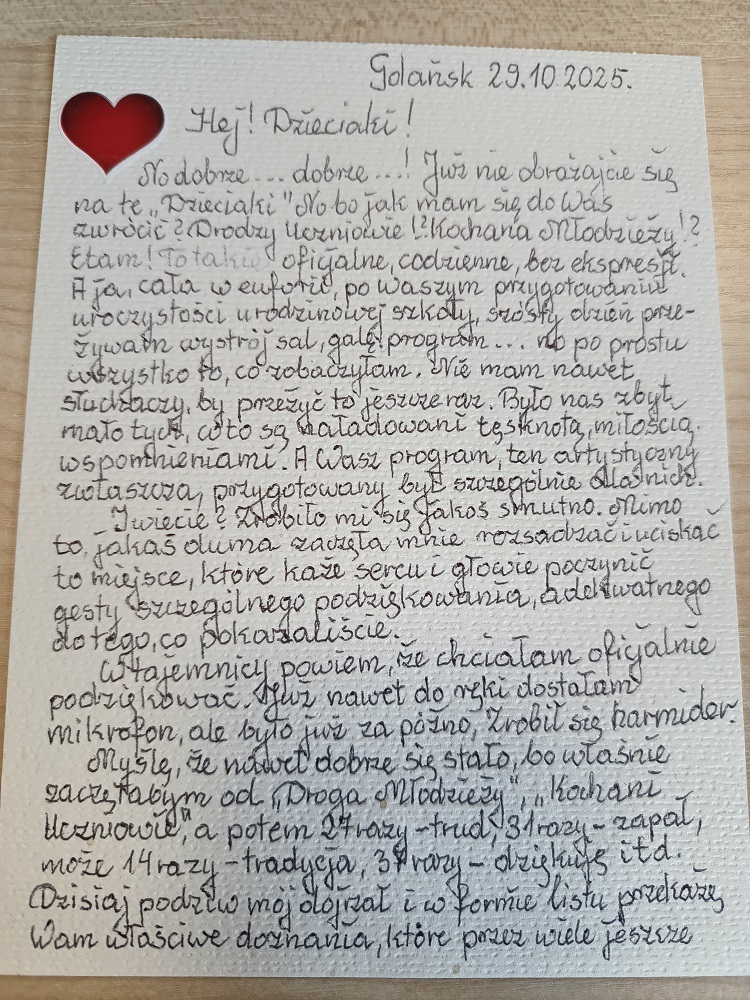 Gdańsk 29.10.2025.
Hej! Dzieciaki!
No dobrze... dobrze...! Już nie obrażajcie się
na te „Dzieciaki" No bo jak mam się do Was
zwrócić? Drodzy Uczniowie!? Kochana Młodzieży!?
Etam! To takie oficjalne, codzienne, bez ekspresji.
A ja, cała w euforii, po Waszym przygotowaniu
uroczystości urodzinowej szkoły, szósty dzień prze-
żywam wystrój sal, galę, program... no po prostu
wszystko to, co zobaczyłam. Nie mam nawet
słuchaczy, by przeżyć to jeszcze raz. Było nas zbyt
mało tych, co to są naładowani tęsknotą, miłością,
wspomnieniami. A Wasz program, ten artystyczny
zwłaszcza, przygotowany był szczególnie dla nich.
I wiecie? Zrobiło mi się jakoś smutno. Mimo
to, jakaś duma zaczęła mnie rozsadzać i uciskać
to miejsce, które każe sercu i głowie poczynić
gesty szczególnego podziękowania, adekwatnego
do tego, co pokazaliście.
W tajemnicy powiem, że chciałam oficjalnie
podziękować. Już nawet do ręki dostałam
mikrofon, ale było już za późno, zrobił się harmider.
Myślę, że nawet dobrze się stało, bo właśnie
zaczęłabym od „Droga Młodzieży", „Kochani
Uczniowie", a potem 27 razy - trud, 31 razy - zapał,
może 14 razy - tradycja, razy - dziękuję itd.
Dzisiaj podziw mój dojrzał i w formie listu przekażę
Wam właściwe doznania, które przez wiele jeszcze